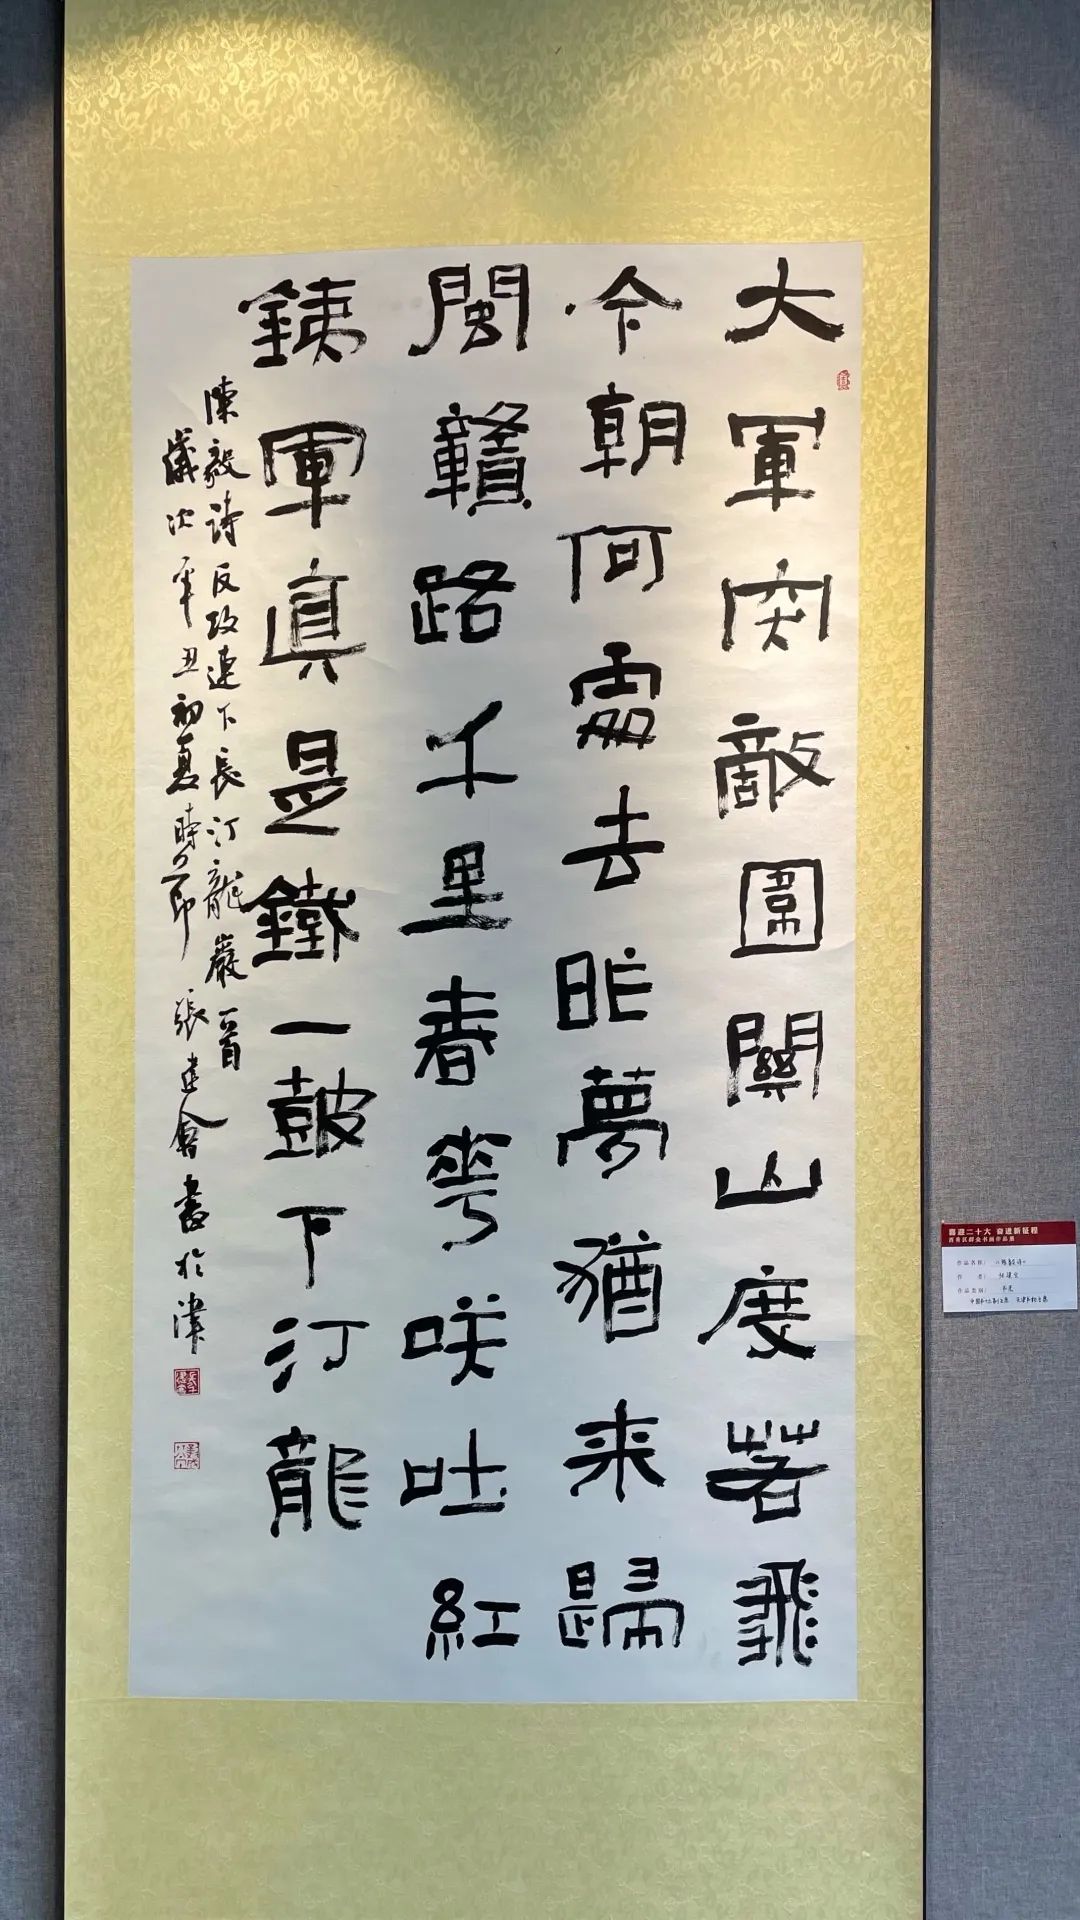 大軍突敵圍關山度若飛
今朝何處去昨夢猶来歸
閩贛路千里春花咲吐紅
銕軍真是鐵一鼓下汀龍
陳毅詩反攻連下長汀龍巖一首
歲次辛丑初夏時節 張建會書於津
喜迎二十大 奋进新征程
西青区群众书画作品展
作品名称：《陈毅诗》
作 者：张建会
作品类别：书法